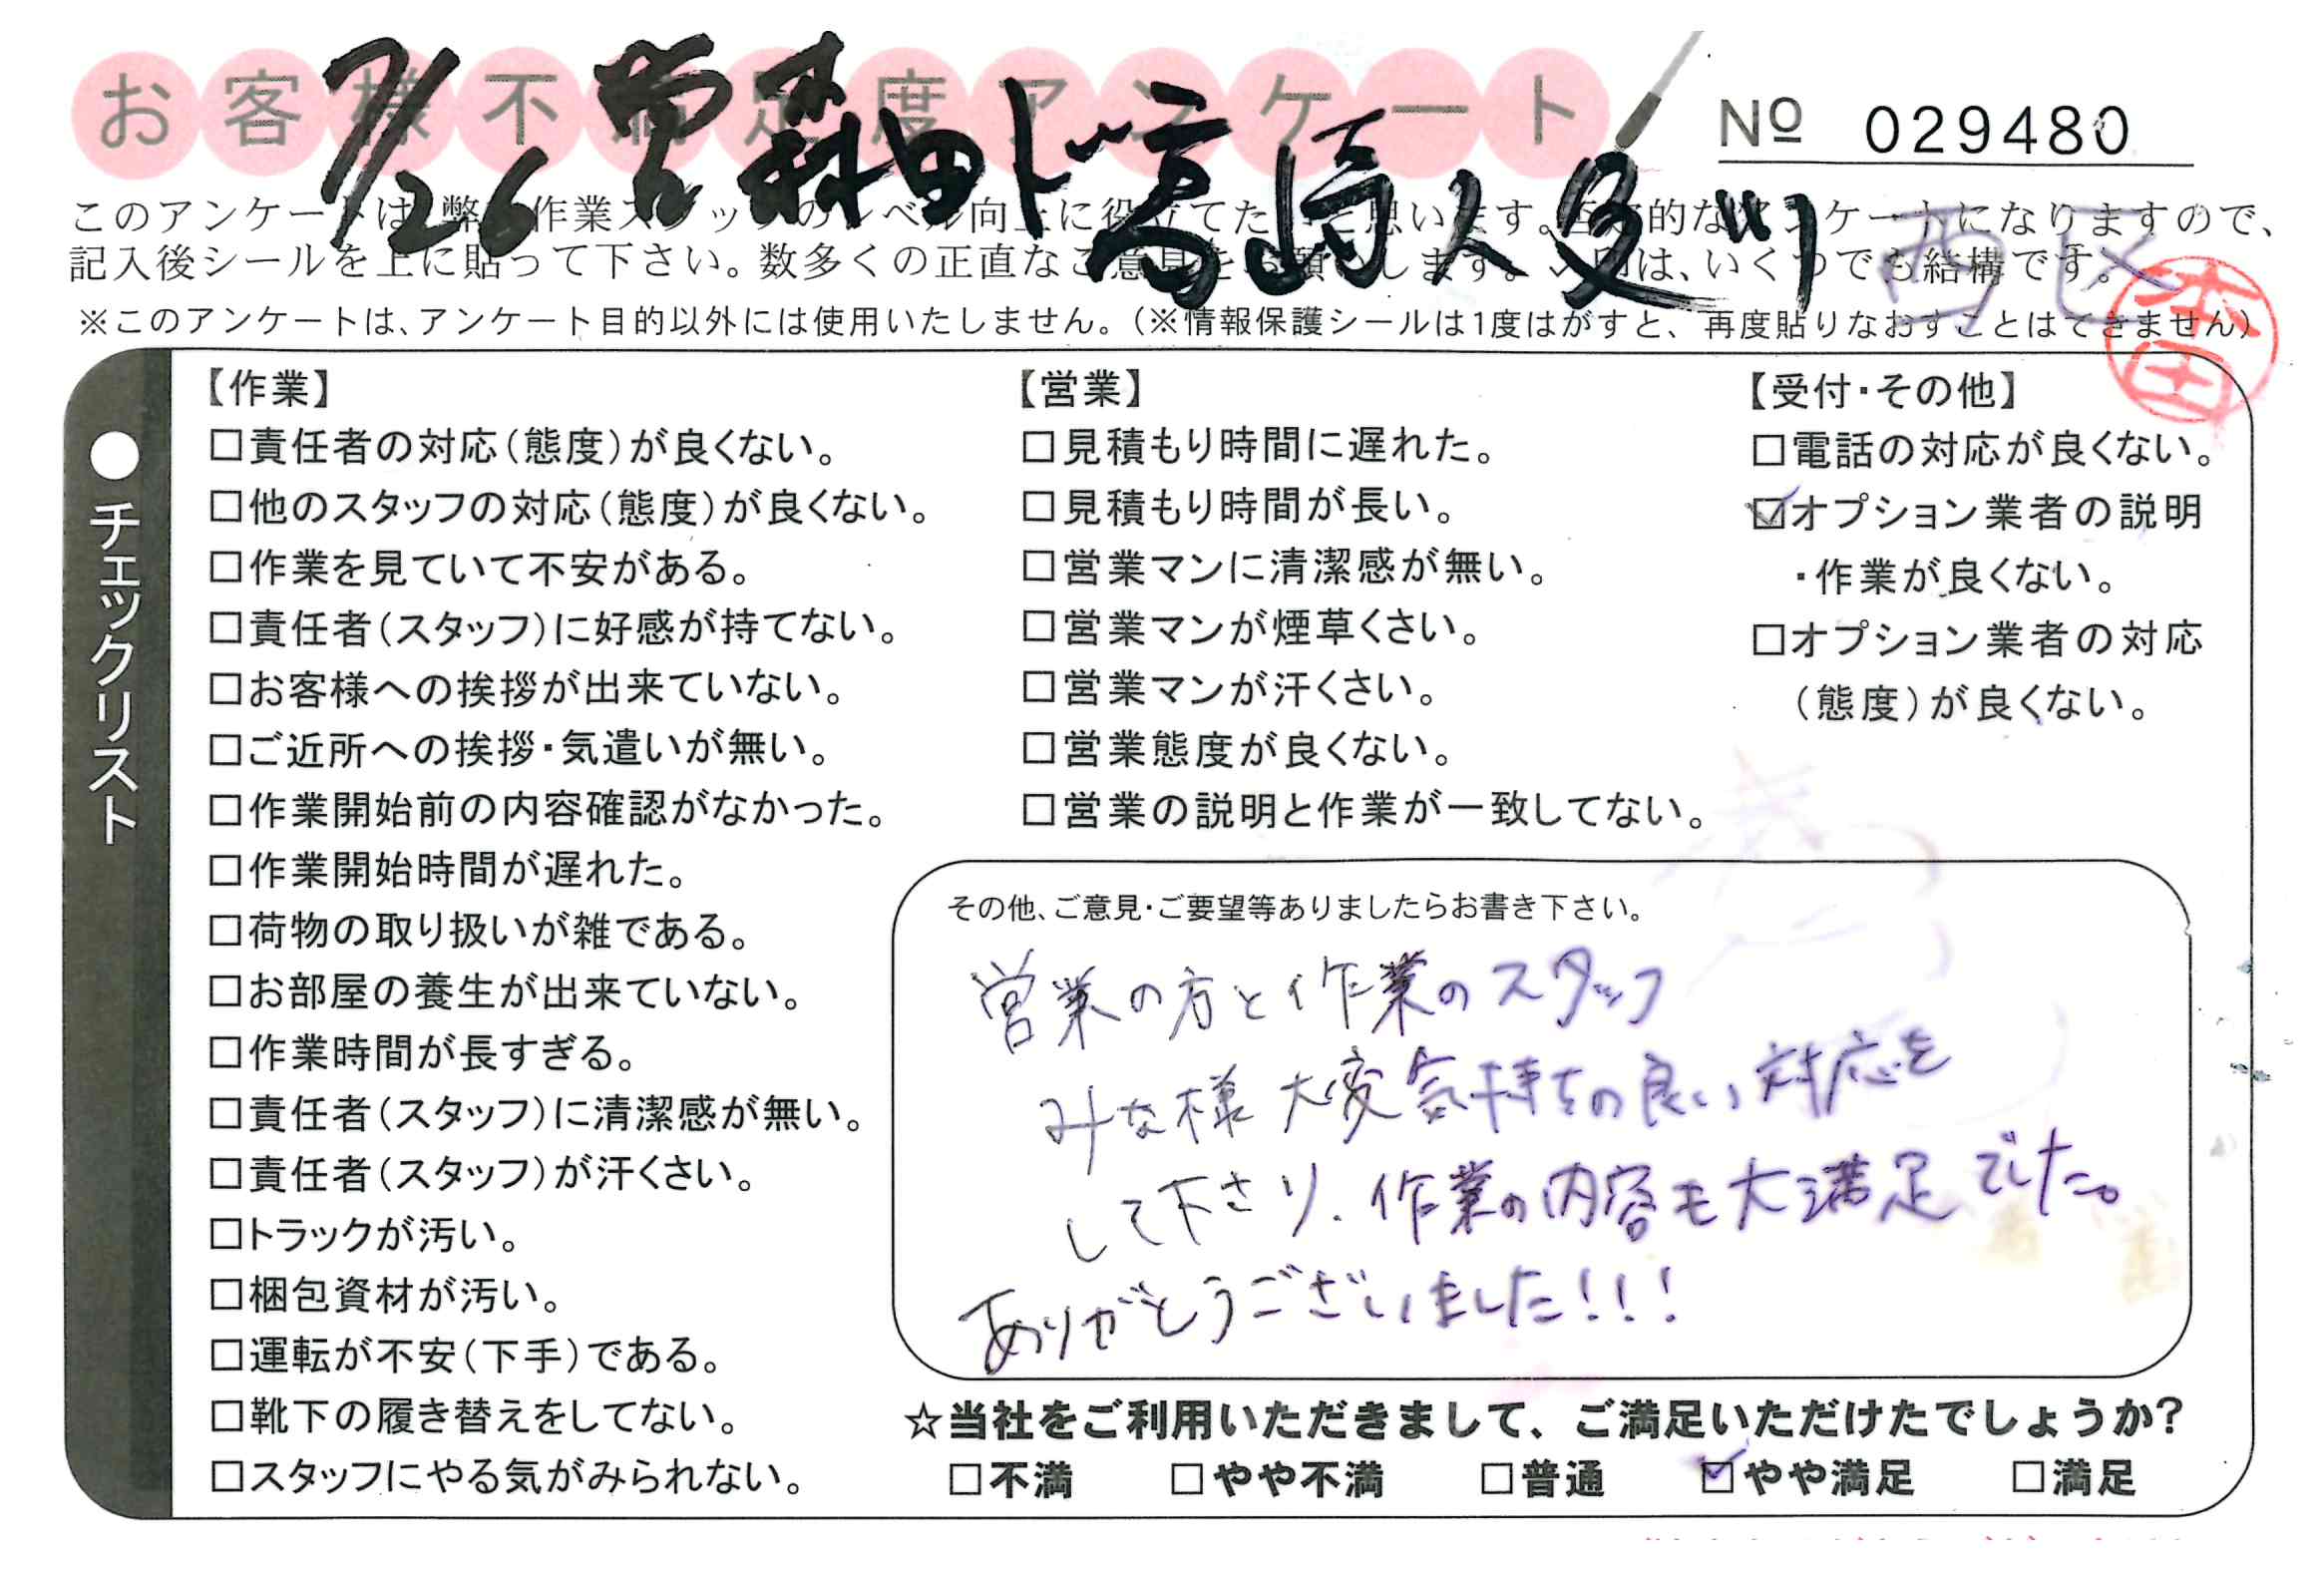 お客様不満足度アンケート
7/26 営 森田 ド 高崎 人見 川
№ 029480
このアンケートは 弊 作業ス ッ のレベル向上に役立てた と思います。 的な ンケートになりますので、
記入後シールを上に貼って下さい。数多くの正直なご意見をお願いします。 は、いくつでも結構です。
西区
※このアンケートは、アンケート目的以外には使用いたしません。（※情報保護シールは1度はがすと、再度貼りなおすことはできません）
本田
●チェックリスト
【作業】
□責任者の対応（態度）が良くない。
□他のスタッフの対応（態度）が良くない。
□作業を見ていて不安がある。
□責任者（スタッフ）に好感が持てない。
□お客様への挨拶が出来ていない。
□ご近所への挨拶・気遣いが無い。
□作業開始前の内容確認がなかった。
□作業開始時間が遅れた。
□荷物の取り扱いが雑である。
□お部屋の養生が出来ていない。
□作業時間が長すぎる。
□責任者（スタッフ）に清潔感が無い。
□責任者（スタッフ）が汗くさい。
□トラックが汚い。
□梱包資材が汚い。
□運転が不安（下手）である。
□靴下の履き替えをしてない。
□スタッフにやる気がみられない。
【営業】
□見積もり時間に遅れた。
□見積もり時間が長い。
□営業マンに清潔感が無い。
□営業マンが煙草くさい。
□営業マンが汗くさい。
□営業態度が良くない。
□営業の説明と作業が一致してない。
【受付・その他】
□電話の対応が良くない。
☑オプション業者の説明
・作業が良くない。
□オプション業者の対応
（態度）が良くない。
その他、ご意見・ご要望等ありましたらお書き下さい。
営業の方と作業のスタッフ
みな様大変気持ちの良い対応を
して下さり、作業の内容も大満足でした。
ありがとうございました!!!
☆当社をご利用いただきまして、ご満足いただけたでしょうか?
□不満 □やや不満 □普通 ☑やや満足 □満足